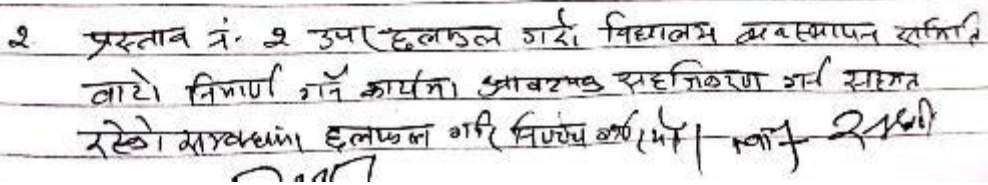 २ प्रस्ताव नं. २ उपर छलफल गरी विद्यालय व्यवस्थापन समिति
बाटो निमार्ण गर्ने कार्यमा आवश्यक सहजिकरण गर्न सहमत
रहेको सम्बन्धमा छलफल गरि निर्णय गरियो।